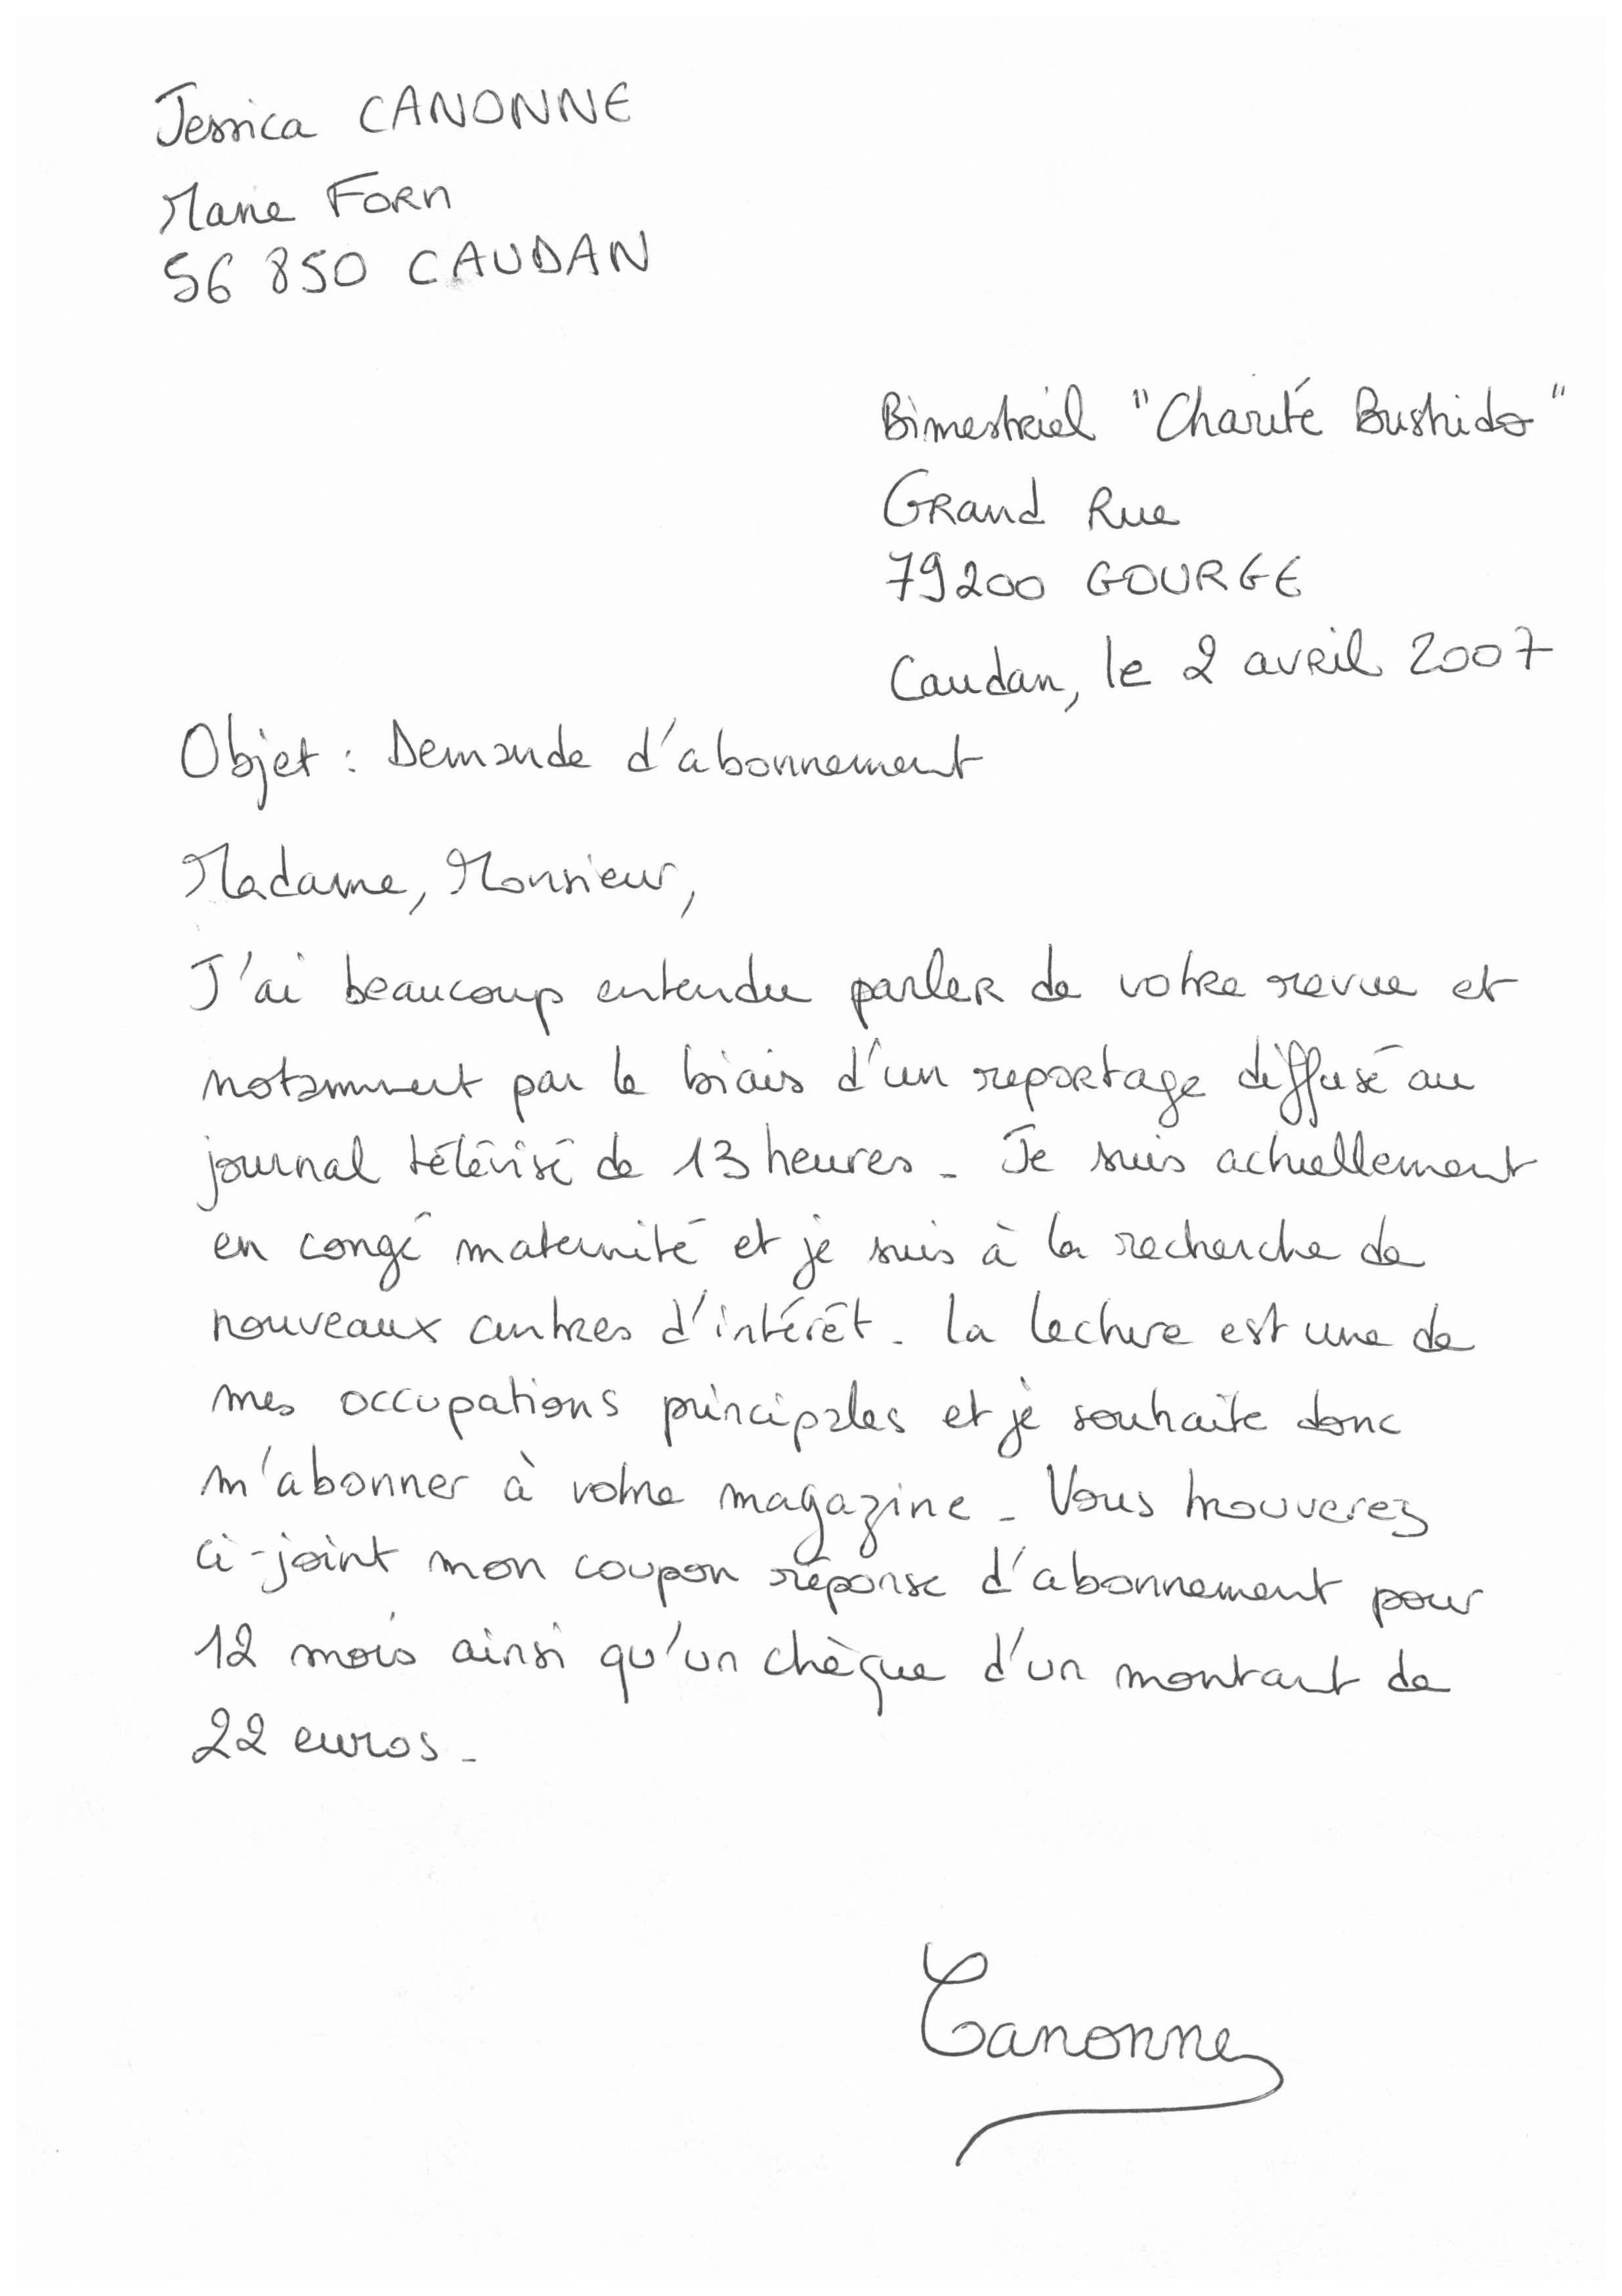 Jessica CANONNE
Mané Forn
56 850 CAUDAN
Bimestriel "Charité Bushido"
Grand Rue
79200 GOURGE
Caudan, le 2 avril 2007
Objet : Demande d'abonnement
Madame, Monsieur,
J'ai beaucoup entendu parler de votre revue et
notamment par le biais d'un reportage diffusé au
journal télévisé de 13 heures. Je suis actuellement
en congé maternité et je suis à la recherche de
nouveaux centres d'intérêt. La lecture est une de
mes occupations principales et je souhaite donc
m'abonner à votre magazine. Vous trouverez
ci-joint mon coupon réponse d'abonnement pour
12 mois ainsi qu'un chèque d'un montant de
22 euros.
Canonne